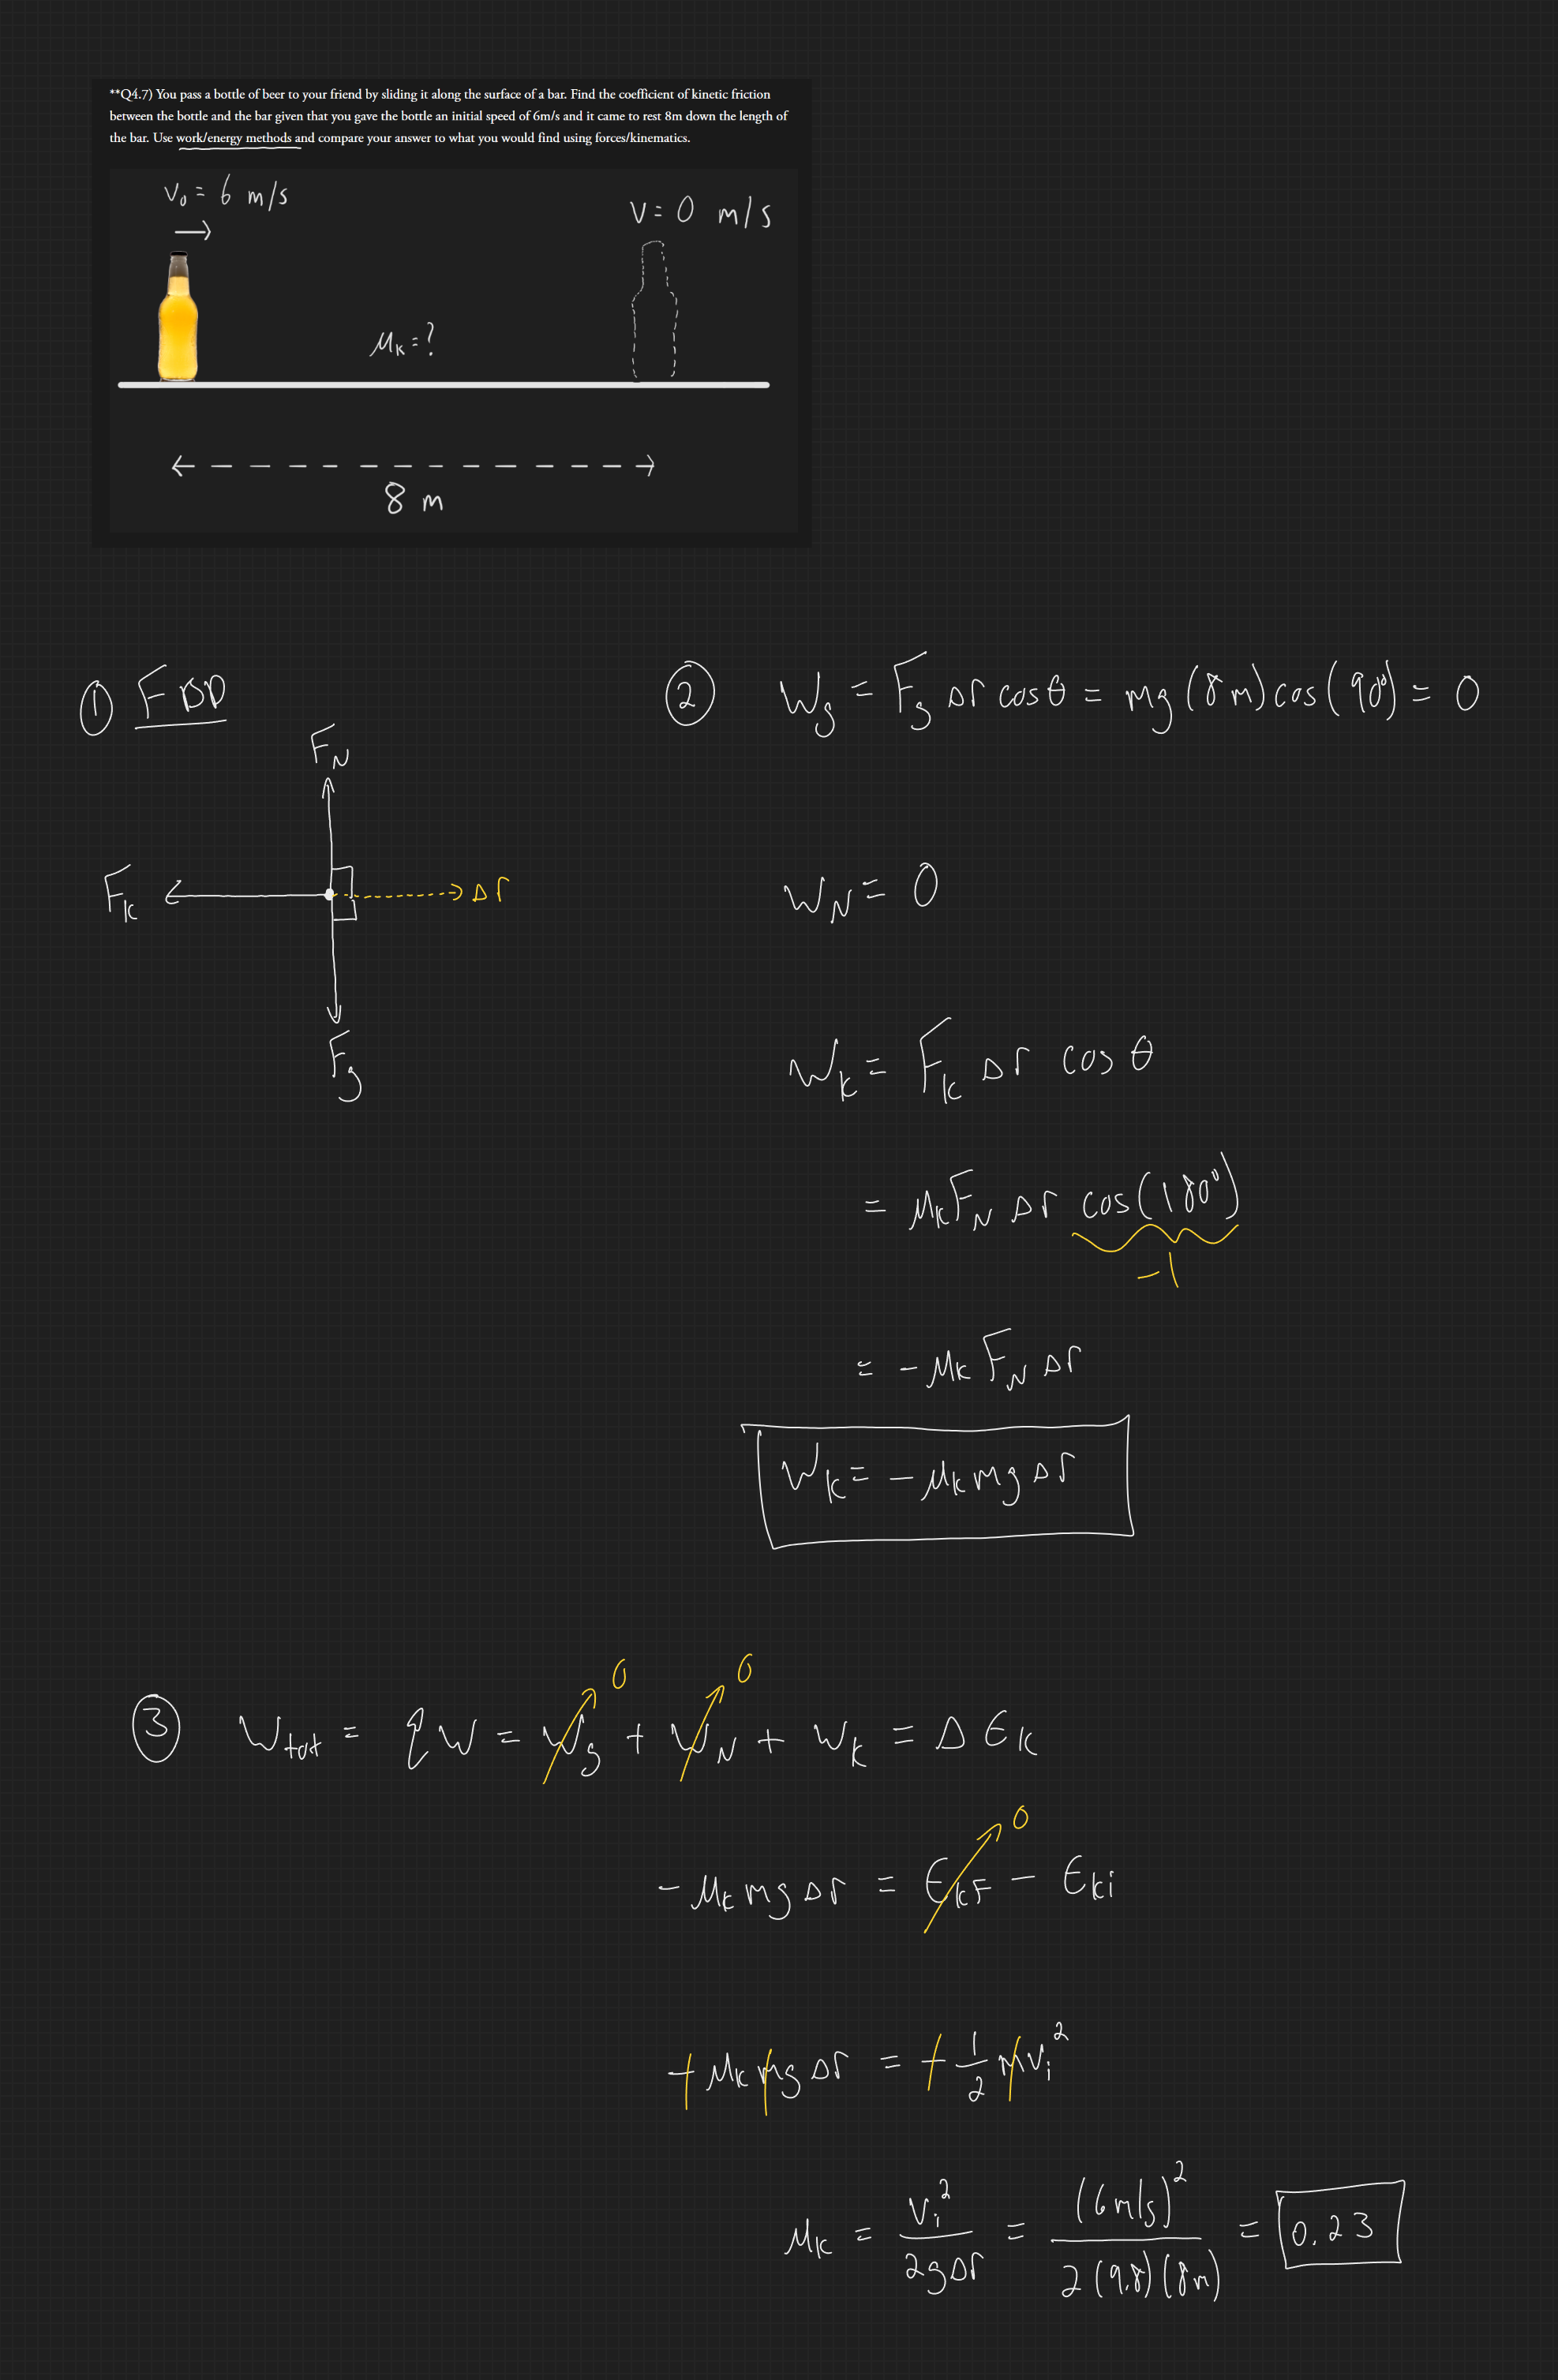 **Q4.7) You pass a bottle of beer to your friend by sliding it along the surface of a bar. Find the coefficient of kinetic friction
between the bottle and the bar given that you gave the bottle an initial speed of 6m/s and it came to rest 8m down the length of
the bar. Use work/energy methods and compare your answer to what you would find using forces/kinematics.
V₀ = 6 m/s
V = 0 m/s
μₖ = ?
8 m
① FBD
F_N
F_k
Δr
F_g
② W_g = F_g Δr cosθ = mg(8m)cos(90°) = 0
W_N = 0
W_k = F_k Δr cosθ
= μ_k F_N Δr cos(180°)
-1
= -μ_k F_N Δr
W_k = -μ_k mg Δr
③ W_tot = ΣW = W_g + W_N + W_k = ΔE_k
0 0
-μ_k mg Δr = E_kF - E_ki
0
-μ_k mg Δr = -1/2 mv_i²
μ_k = v_i²/2gΔr = (6m/s)²/2(9.8)(8m) = 0.23